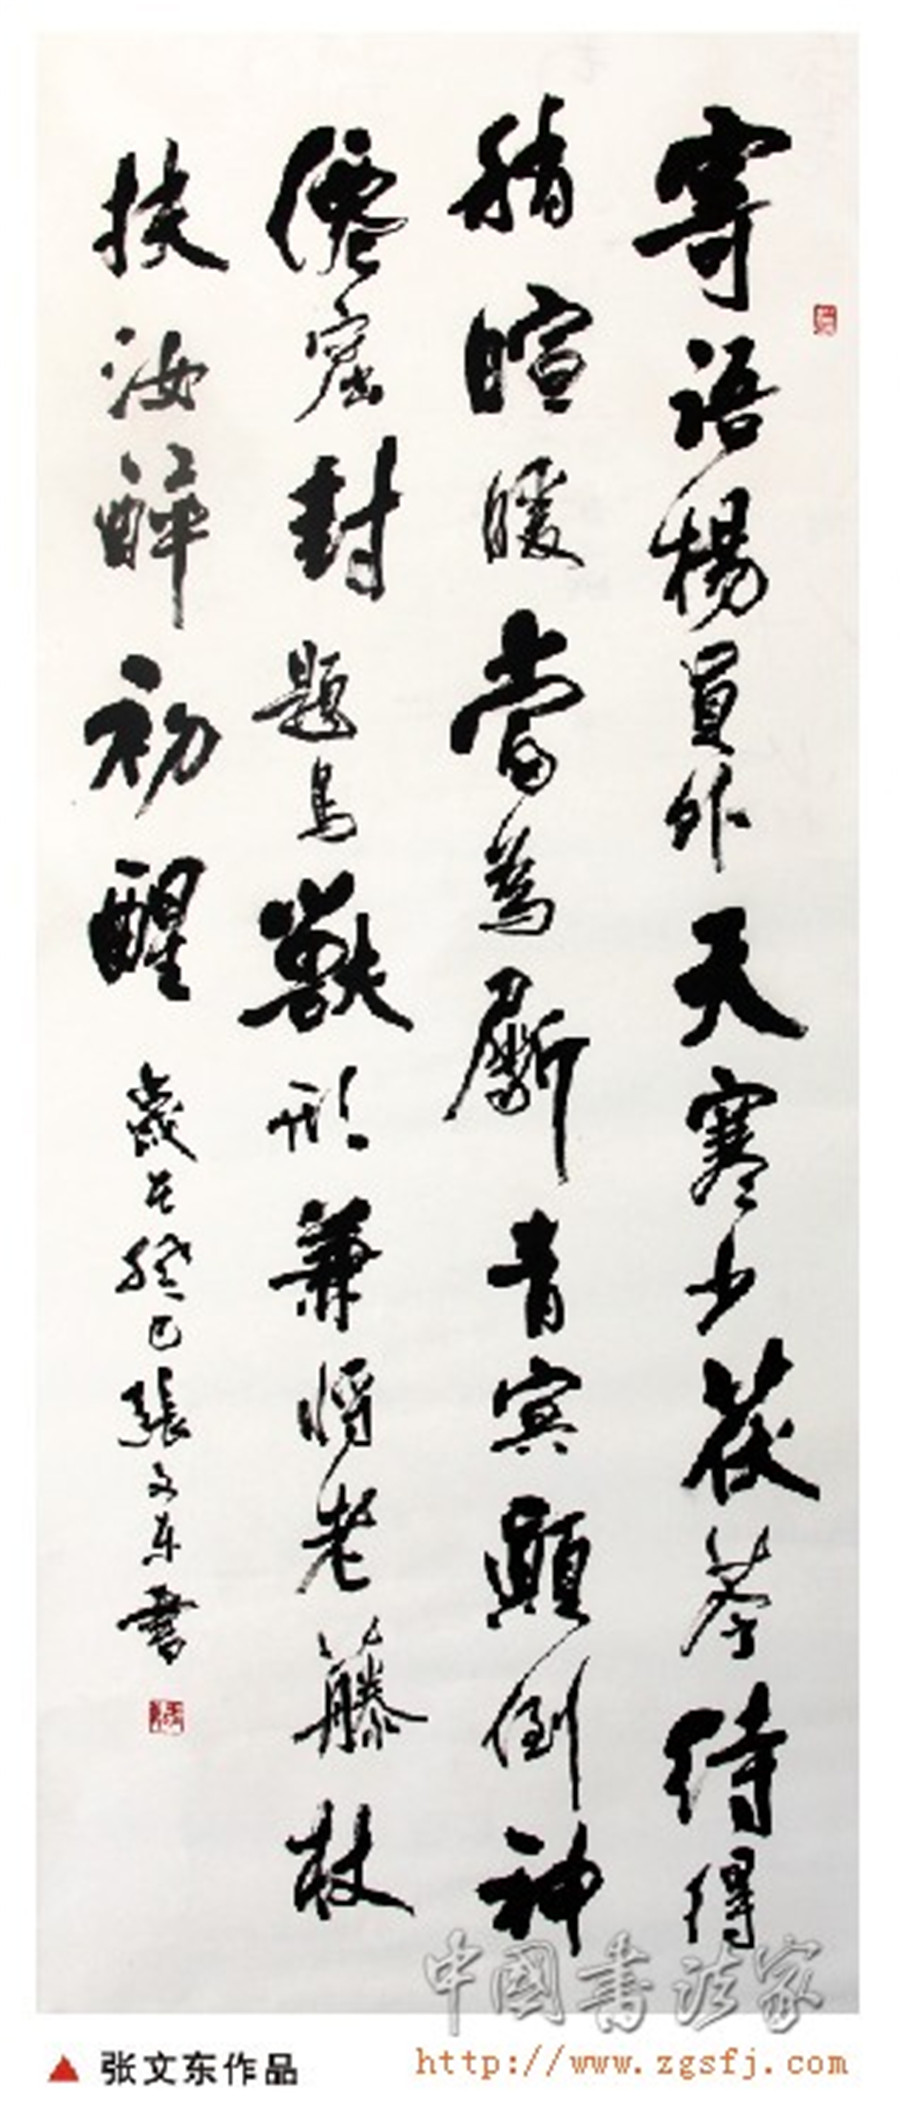 寄語楊員外天寒少茯苓待得
稍暄暖當為斸青冥顛倒神
僊窟封題鳥獸形兼將老藤杖
扶汝醉初醒
歲在癸巳張文东書
中國書法家
张文东作品
http://www.zgsfj.com